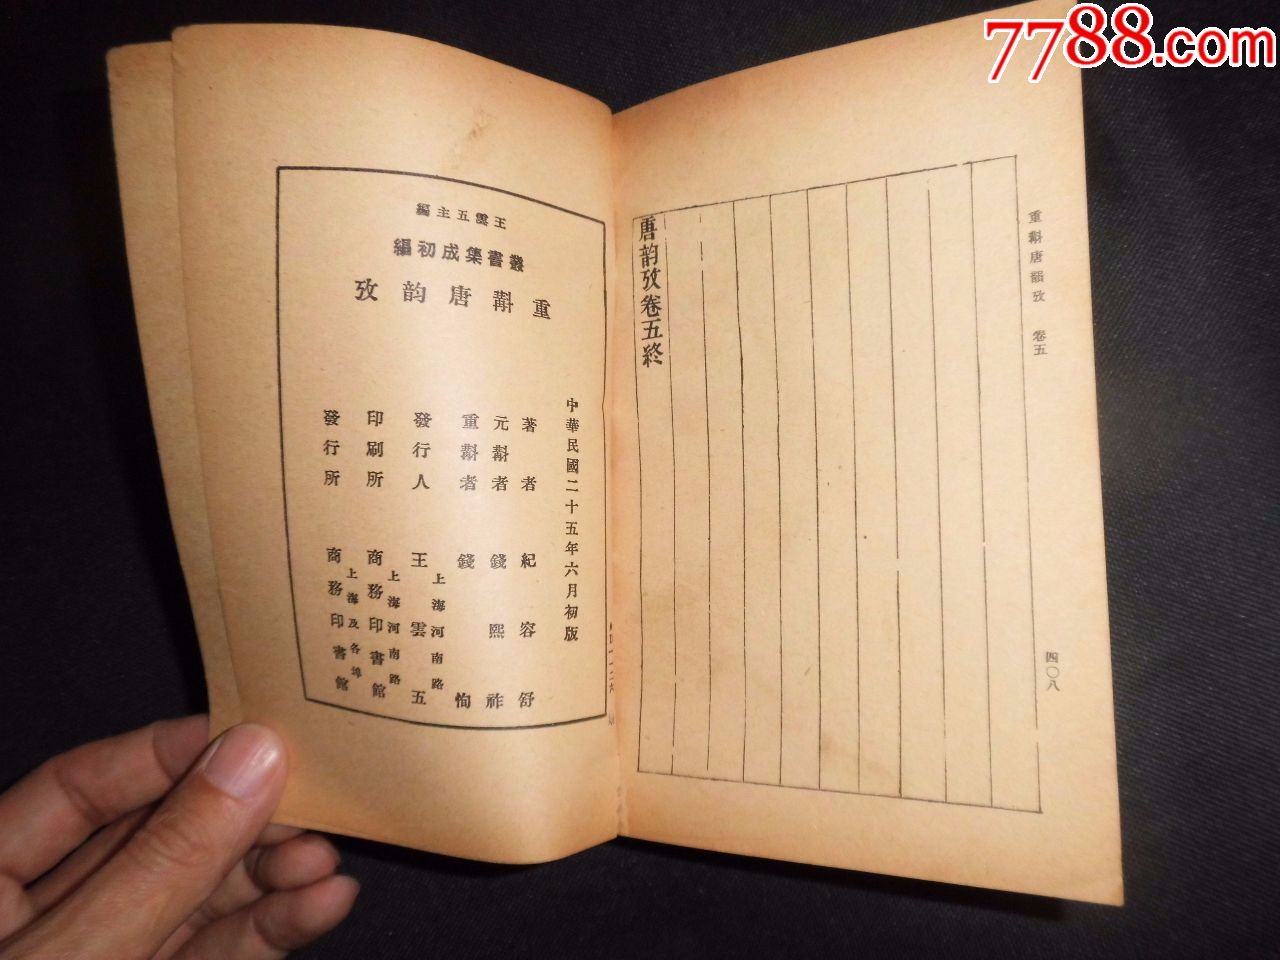 7788.com
重斠唐韻攷 卷五
四〇八
唐韵攷卷五終
王雲五主編
叢書集成初編
重斠唐韵攷
中華民國二十五年六月初版
著者 紀容舒
元斠者 錢熙祚
重斠者 錢恂
發行人 王雲五
上海河南路
印刷所 商務印書館
上海河南路
發行所 商務印書館
上海及各埠